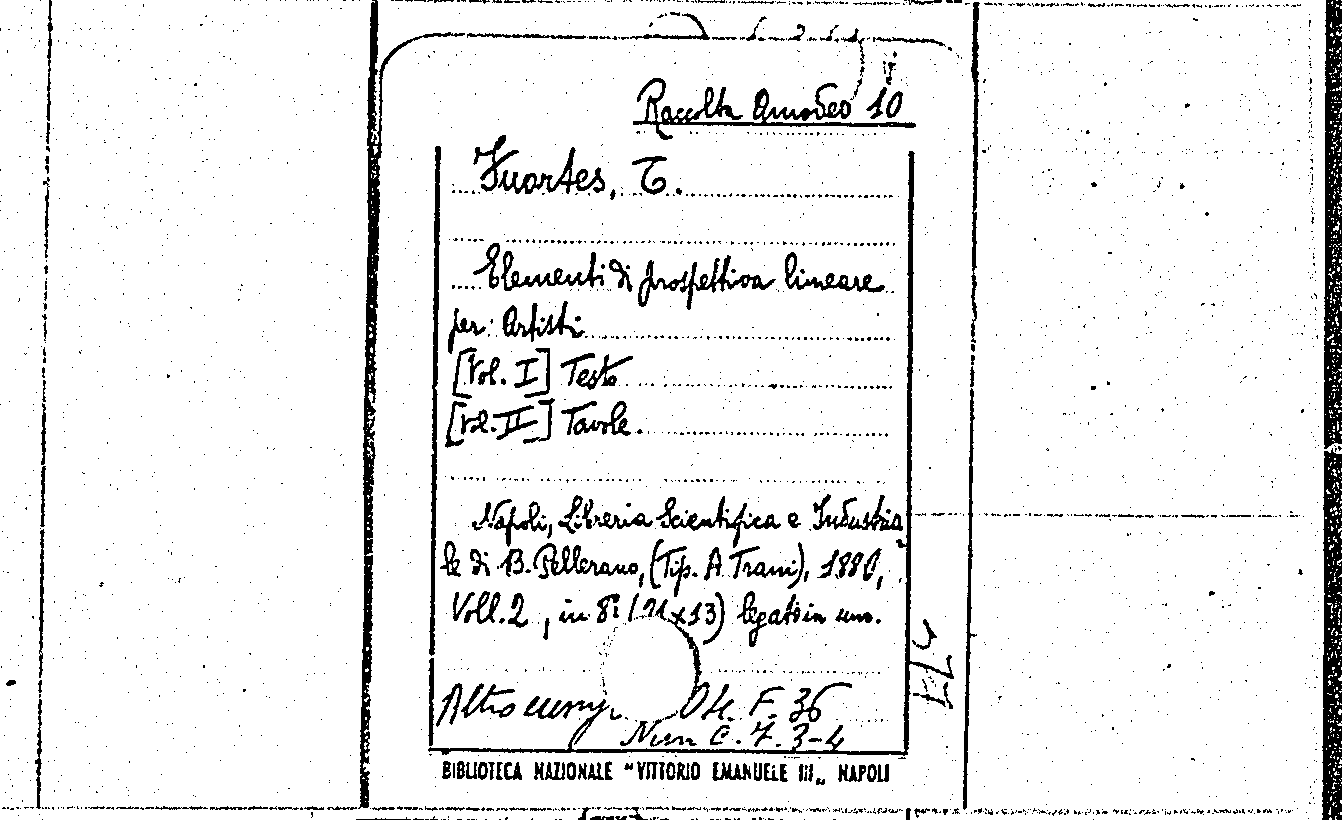 Raccolta Amodeo 10
Fuortes, T.
Elementi di prospettiva lineare
per Artisti
[Vol. I] Testo
[Vol. II] Tavole.
Napoli, Libreria Scientifica e Industria
le di B. Pellerano, (Tip. A Trani), 1880,
Voll. 2, in 8° (21x13) legati in uno.
Altro F. 36
C. 7. 3-4
BIBLIOTECA NAZIONALE "VITTORIO EMANUELE III„ NAPOLI